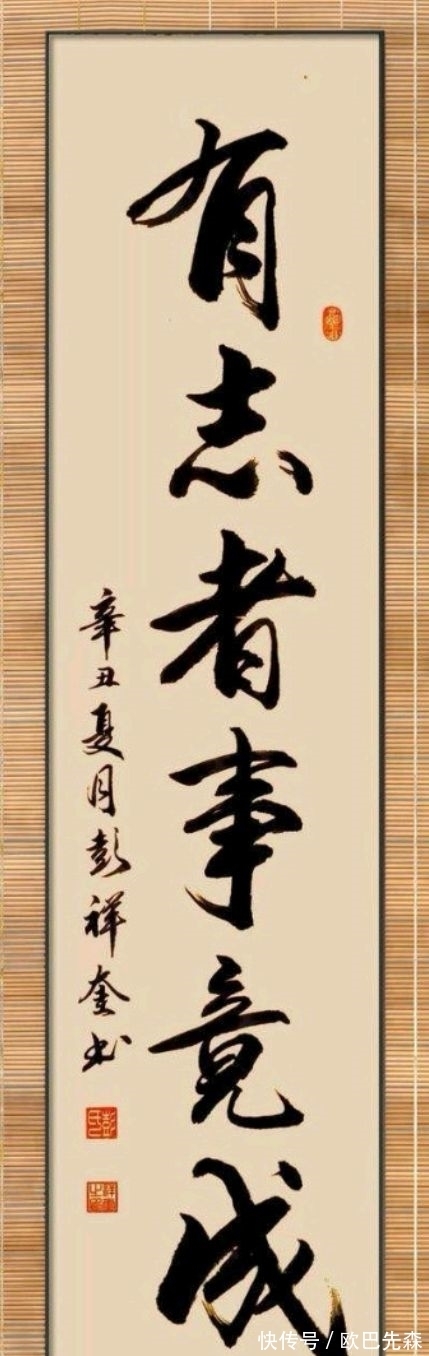 有志者事竟成
辛丑夏月彭祥奎书
快传号/欧巴先森